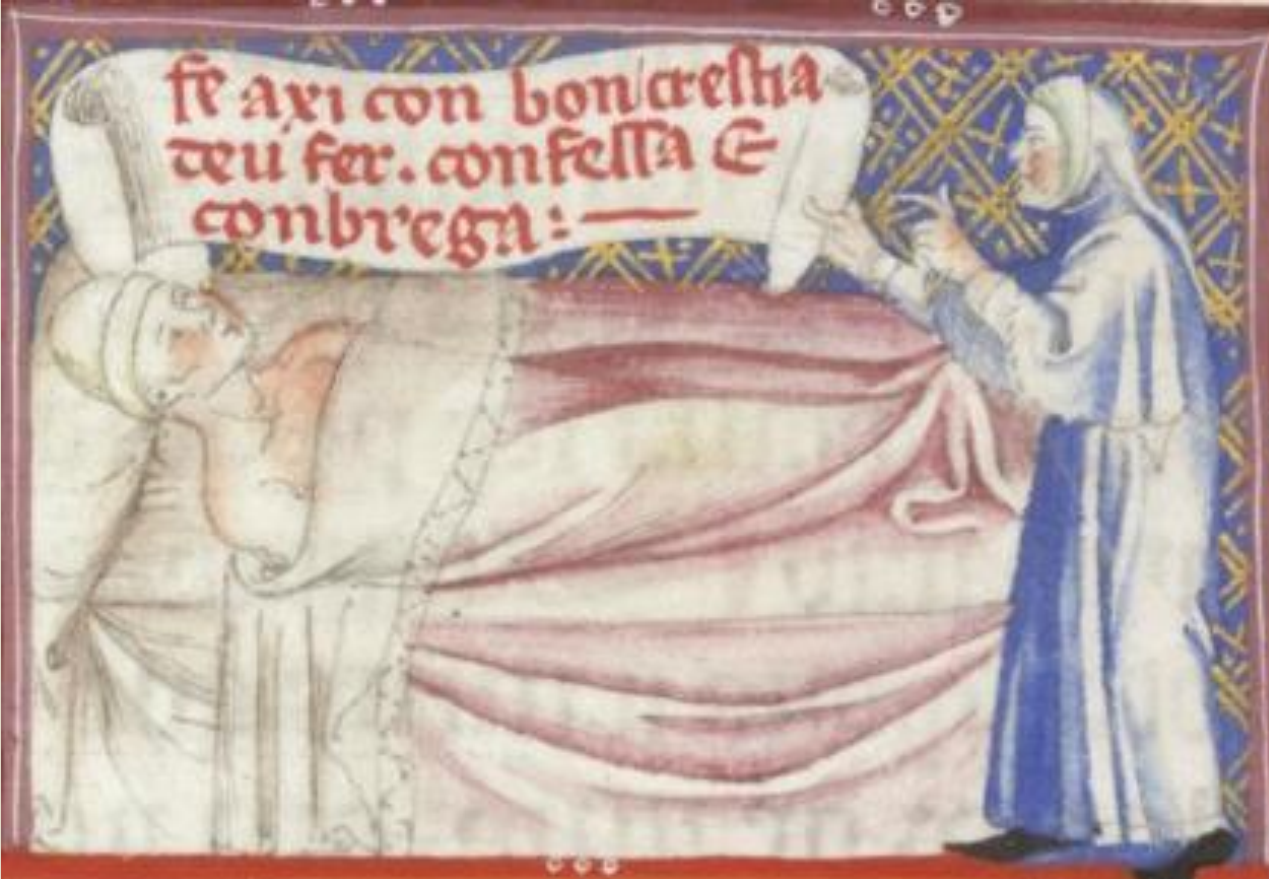 fe axi con bon crestia
deu fer. confessa E
conbrega:—